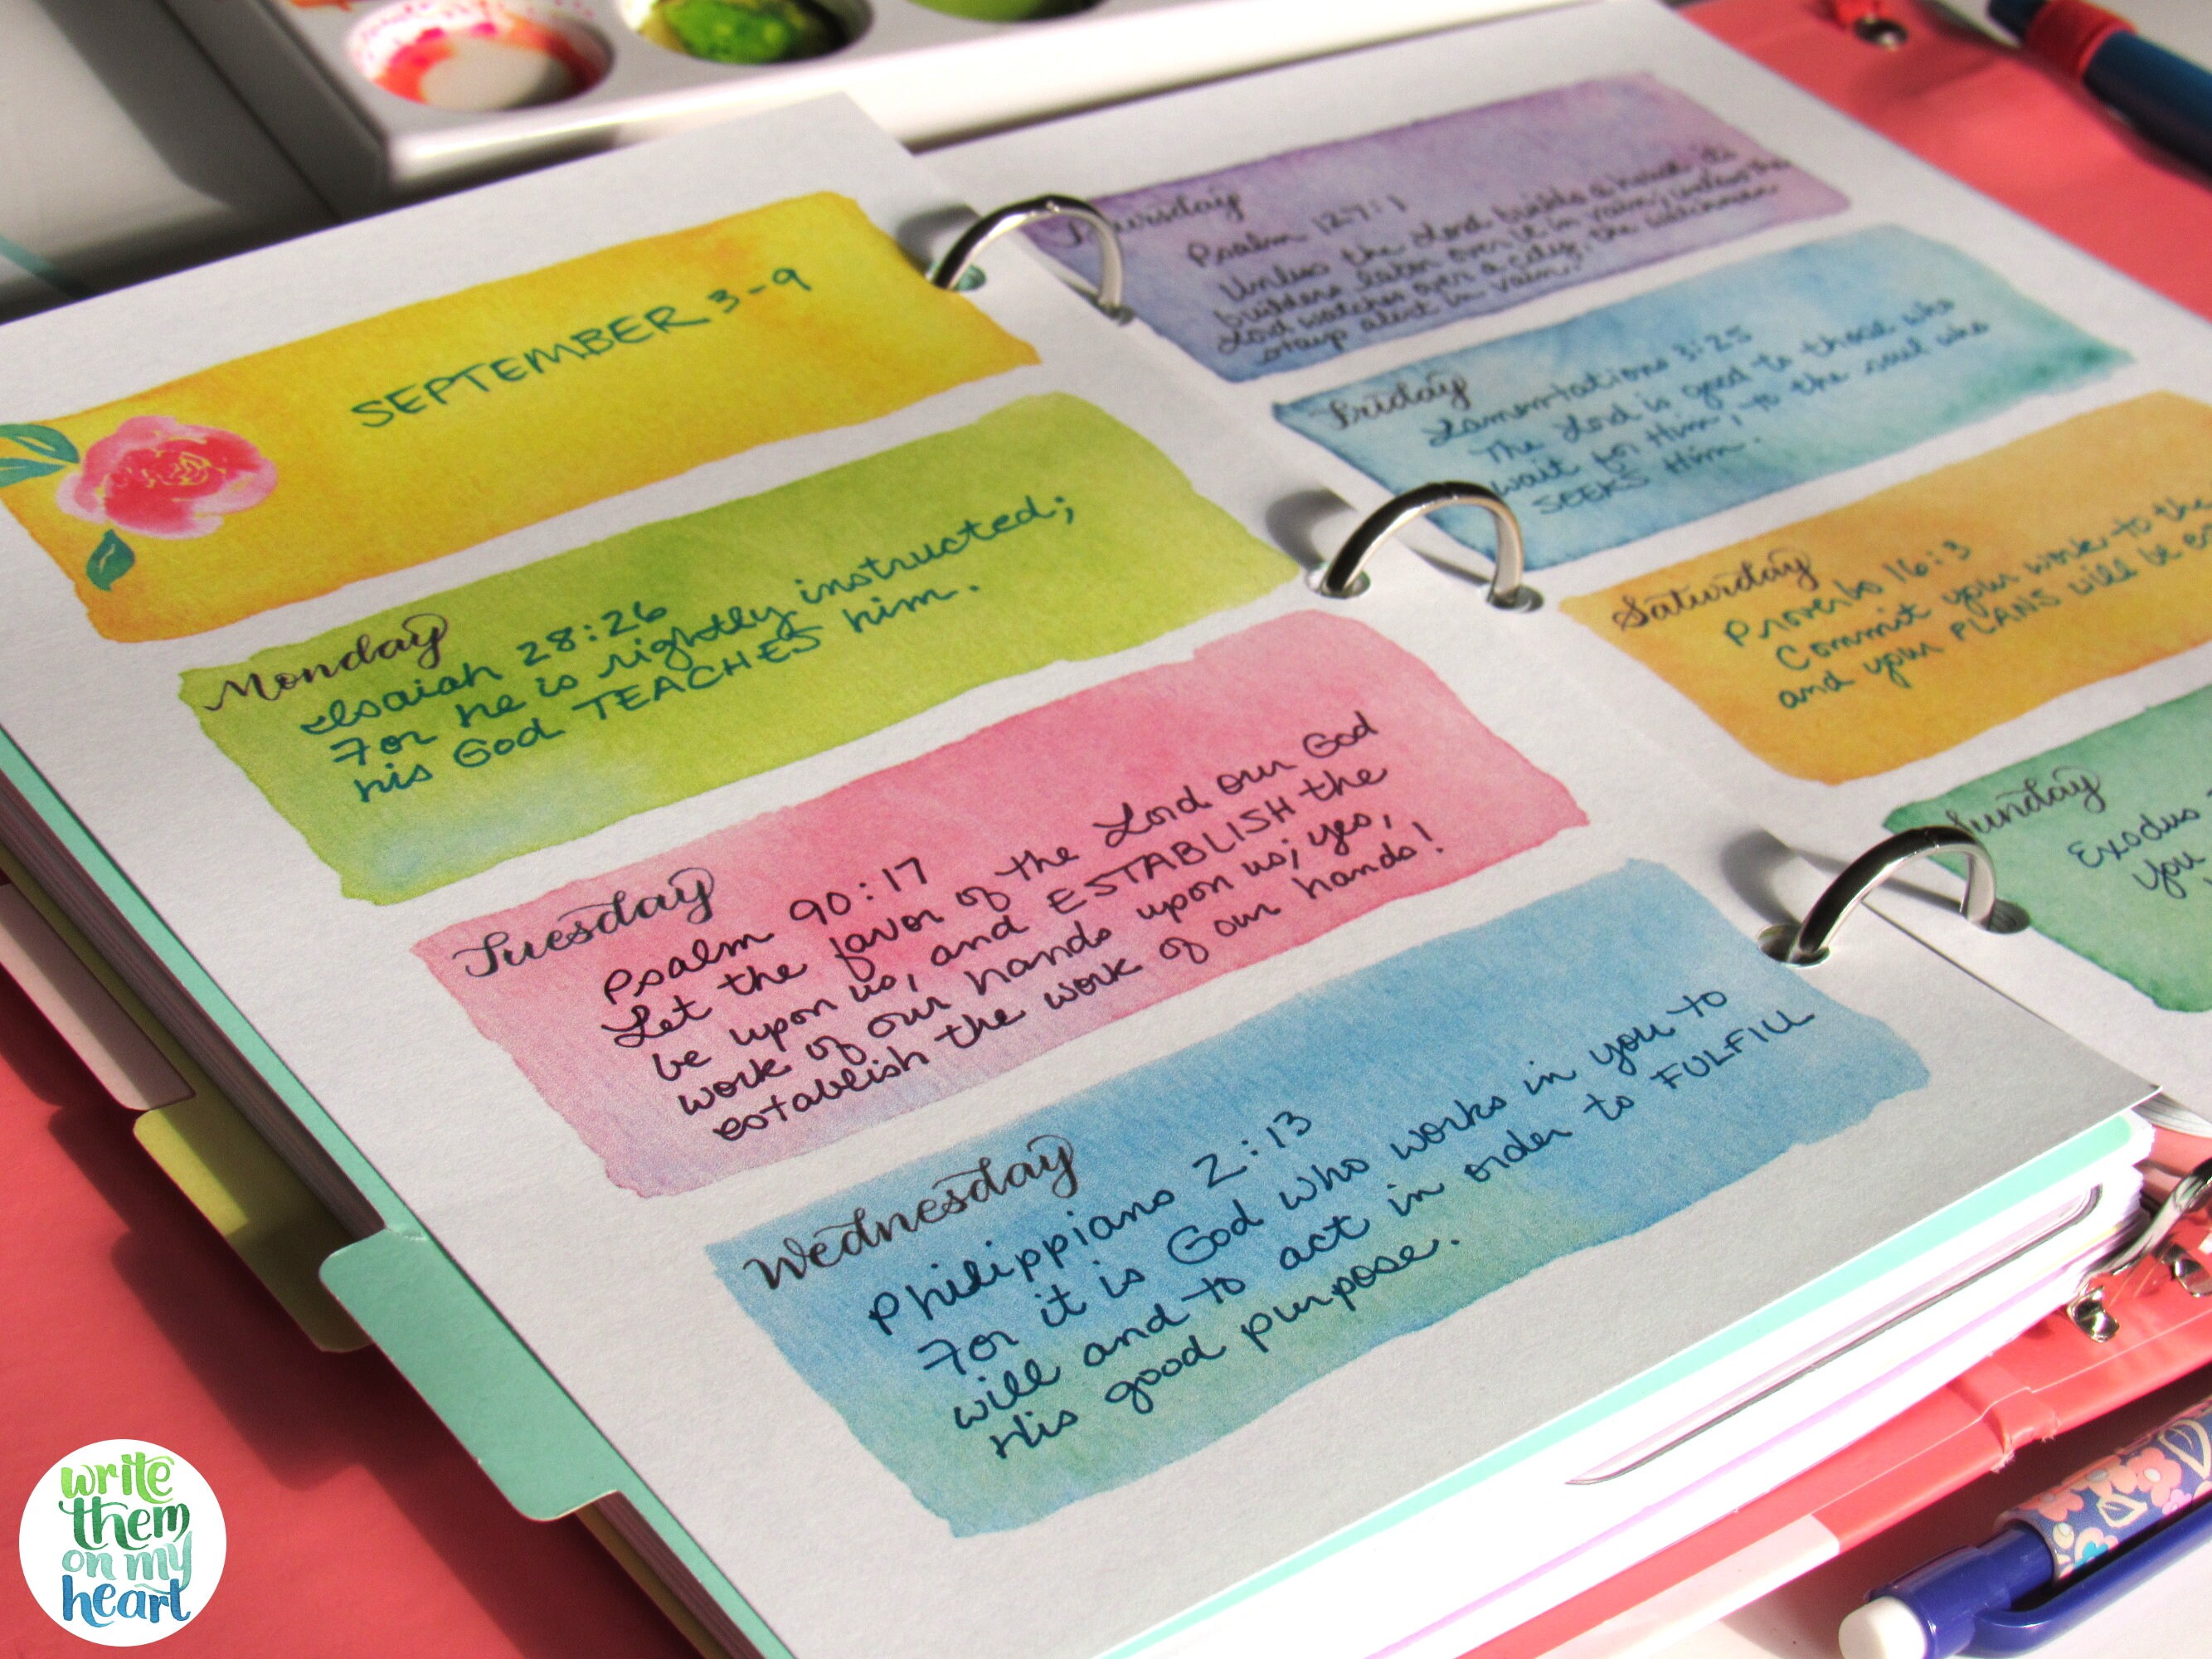 SEPTEMBER 3-9
Monday
Isaiah 28:26
For he is rightly instructed;
his God TEACHES him.
Tuesday
Psalm 90:17
Let the favor of the Lord our God
be upon us, and ESTABLISH the
work of our hands upon us; yes,
establish the work of our hands!
Wednesday
Philippians 2:13
For it is God who works in you to
will and to act in order to FULFILL
His good purpose.
Thursday
Psalm 127:1
Unless the Lord builds a house its
builders labor over it in vain; unless the
Lord watches over a city, the watchman
stays alert in vain.
Friday
Lamentations 3:25
The Lord is good to those who
wait for Him, to the soul who
SEEKS Him.
Saturday
Proverbs 16:3
Commit your work to the
and your PLANS will be
Sunday
Exodus
You
write
them
on my
heart